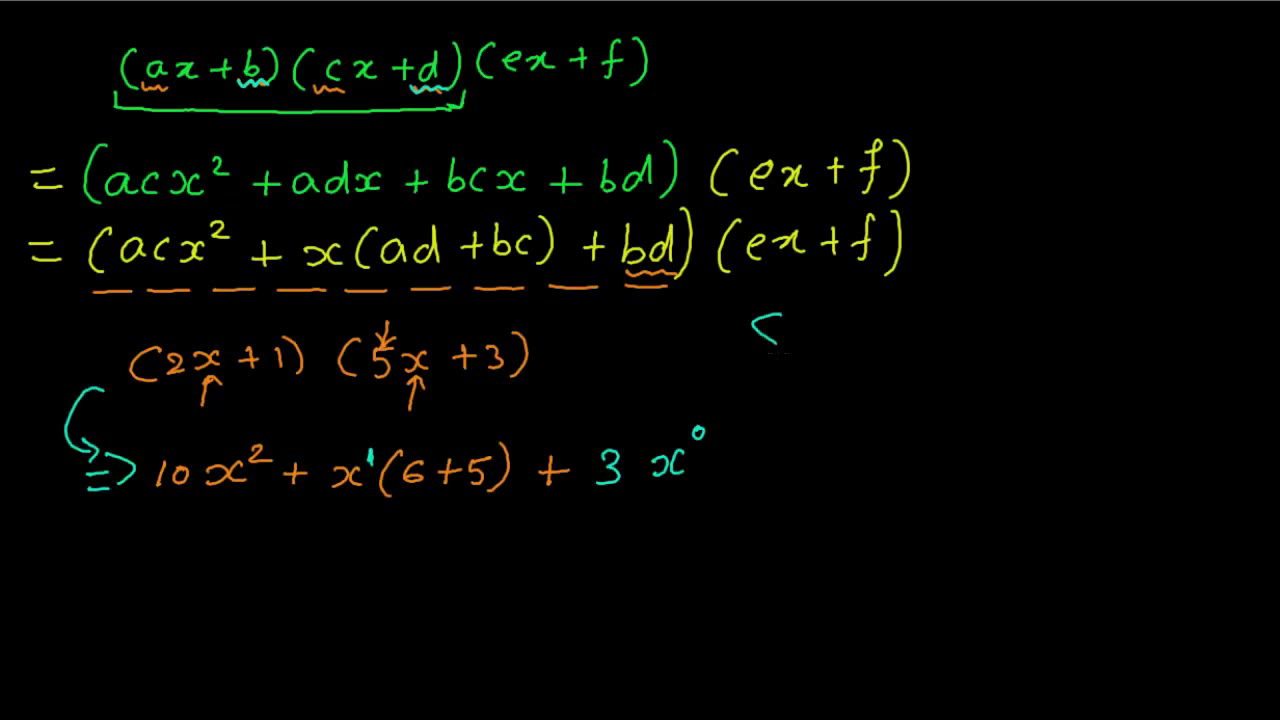 (ax+b)(cx+d)(ex+f)
= (acx² + adx + bcx + bd) (ex+f)
= (acx² + x(ad+bc) + bd) (ex+f)
(2x+1) (5x+3)
=> 10x² + x¹(6+5) + 3 x⁰